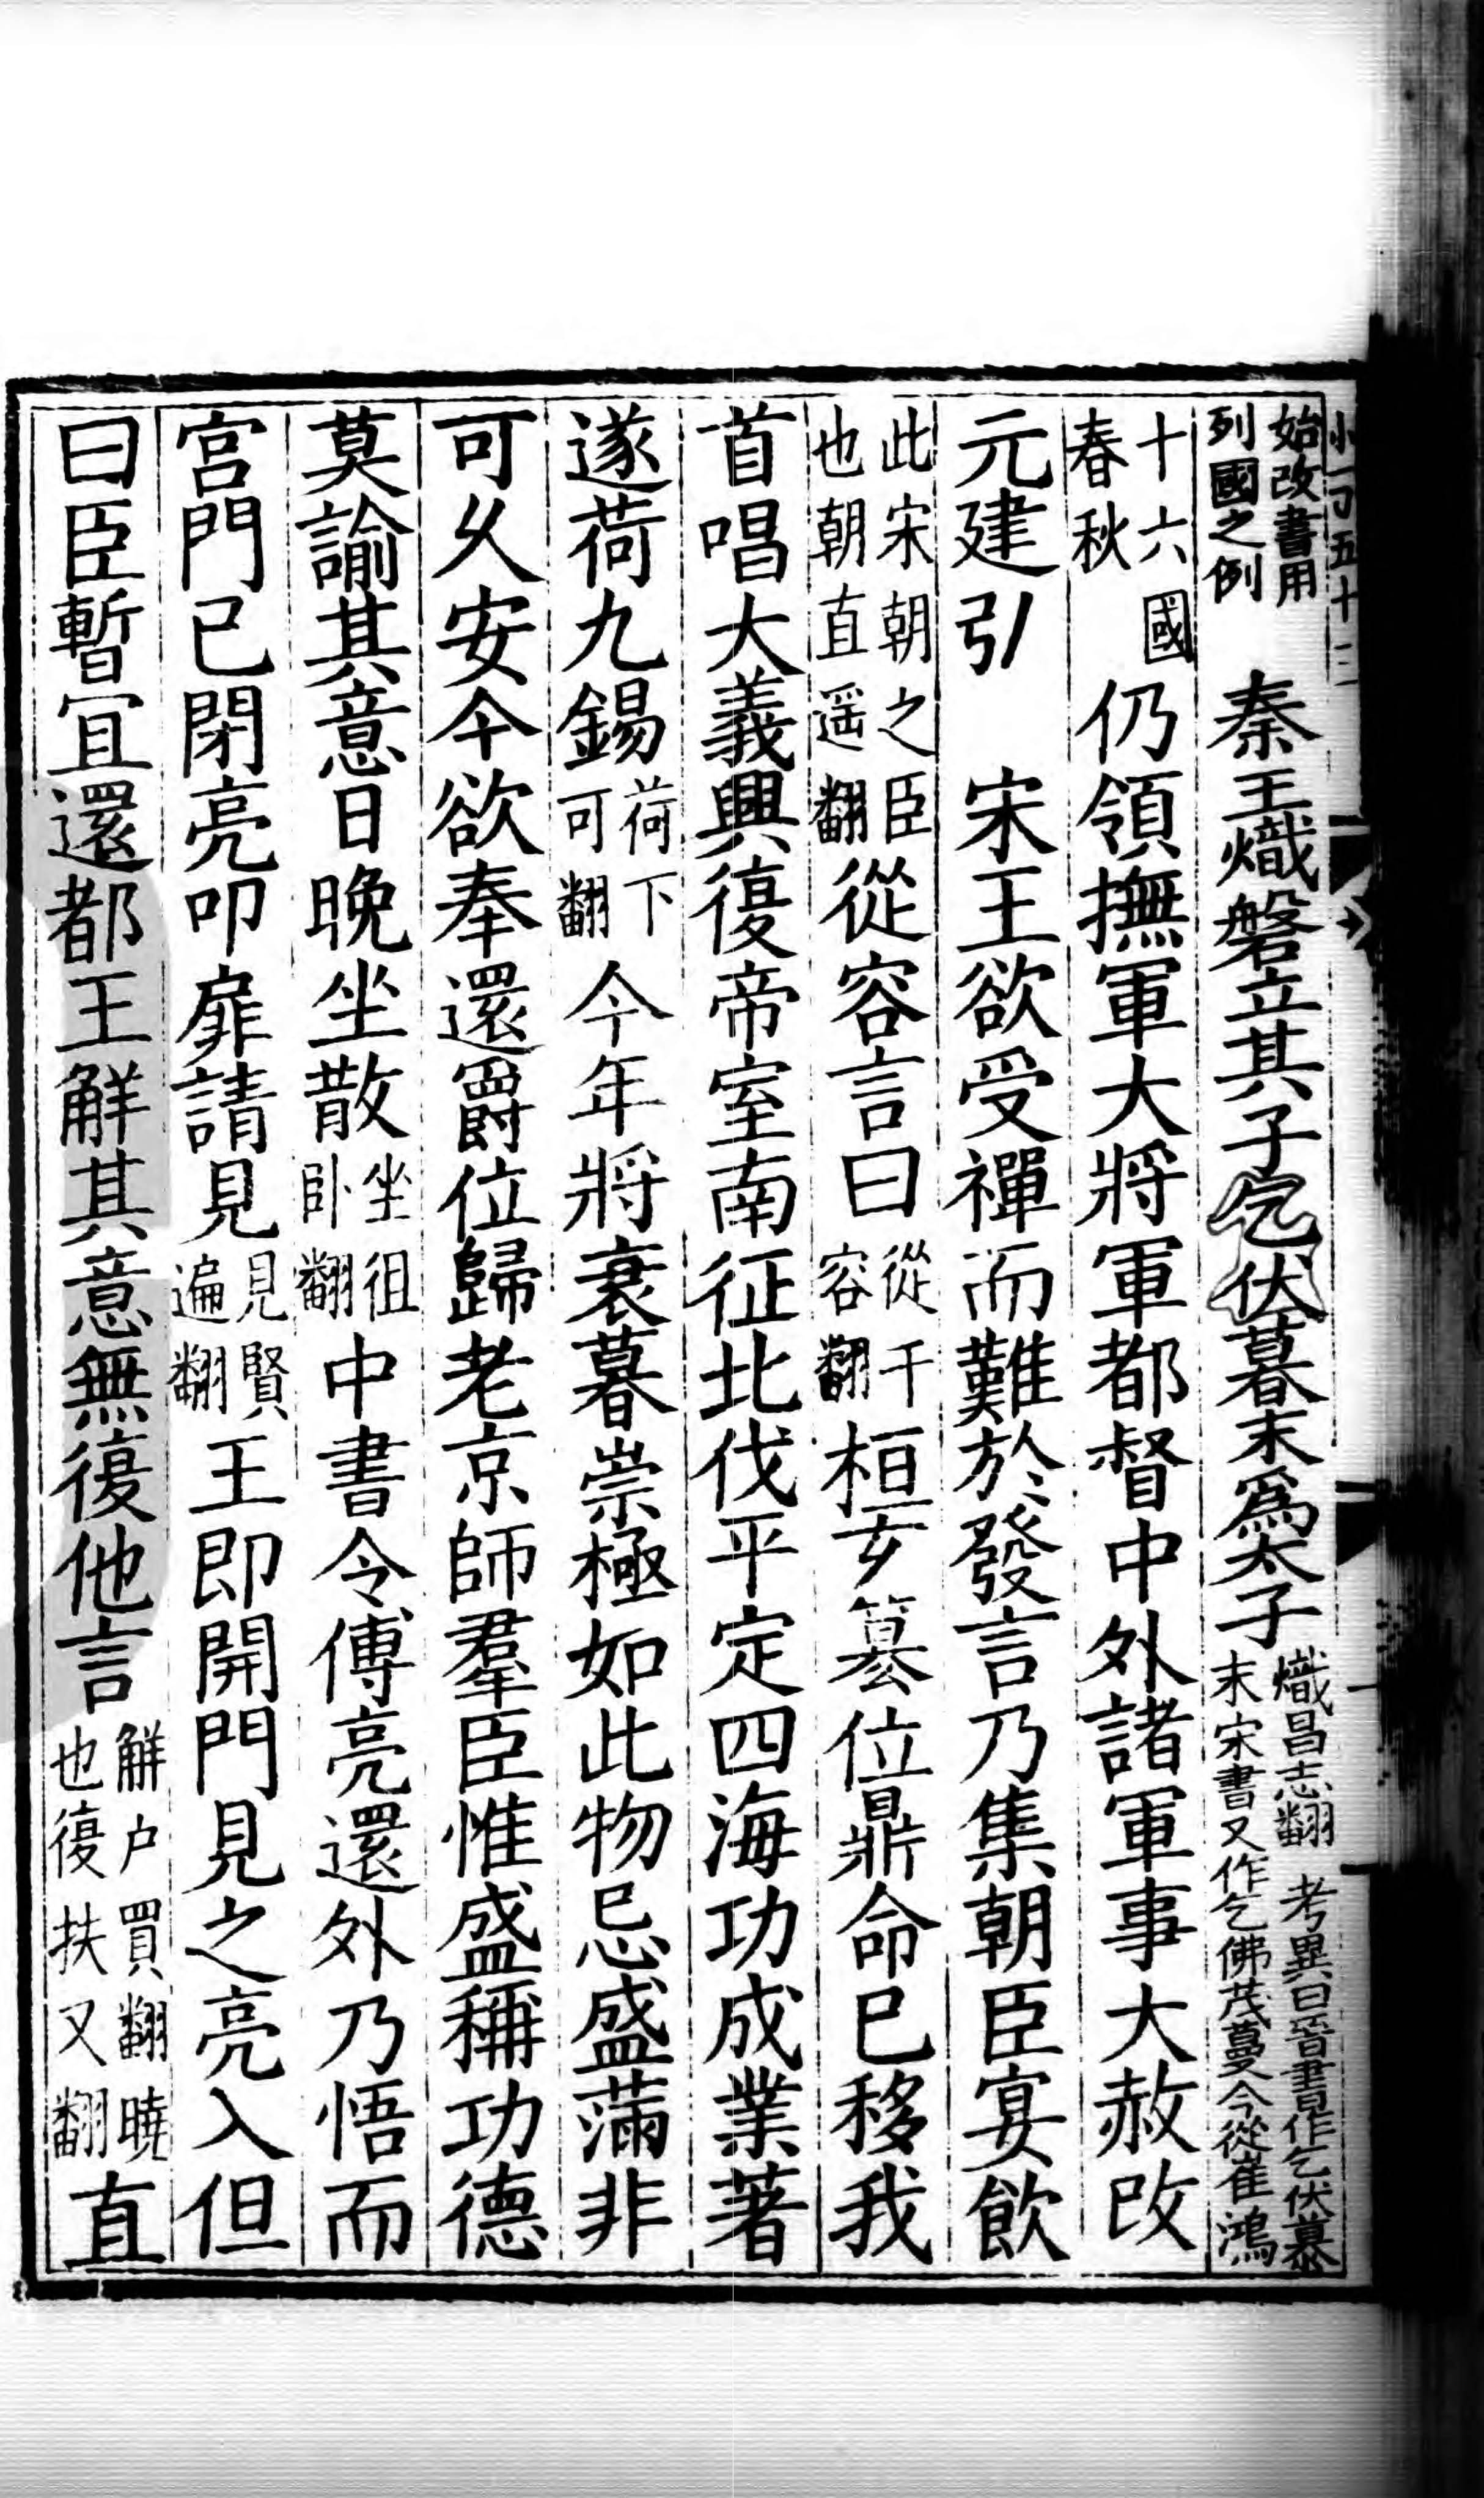 始改書用列國之例　秦王熾磐立其子乞伏暮末爲太子熾昌志翻考異曰晉書作乞伏慕末宋書又作乞佛茂蔓今從崔鴻
十六國春秋仍領撫軍大將軍都督中外諸軍事大赦改
元建弘　宋王欲受禪而難於發言乃集朝臣宴飲
此宋朝之臣也朝直遥翻從容言曰從千容翻桓玄篡位鼎命已移我
首唱大義興復帝室南征北伐平定四海功成業著
遂荷九錫荷下可翻今年將衰暮崇極如此物忌盛滿非
可久安今欲奉還爵位歸老京師羣臣惟盛稱功德
莫諭其意日晚坐散坐徂卧翻中書令傅亮還外乃悟而
宮門已閉亮叩扉請見見賢遍翻王即開門見之亮入但
曰臣暫宜還都王解其意無復他言解户買翻曉也復扶又翻直